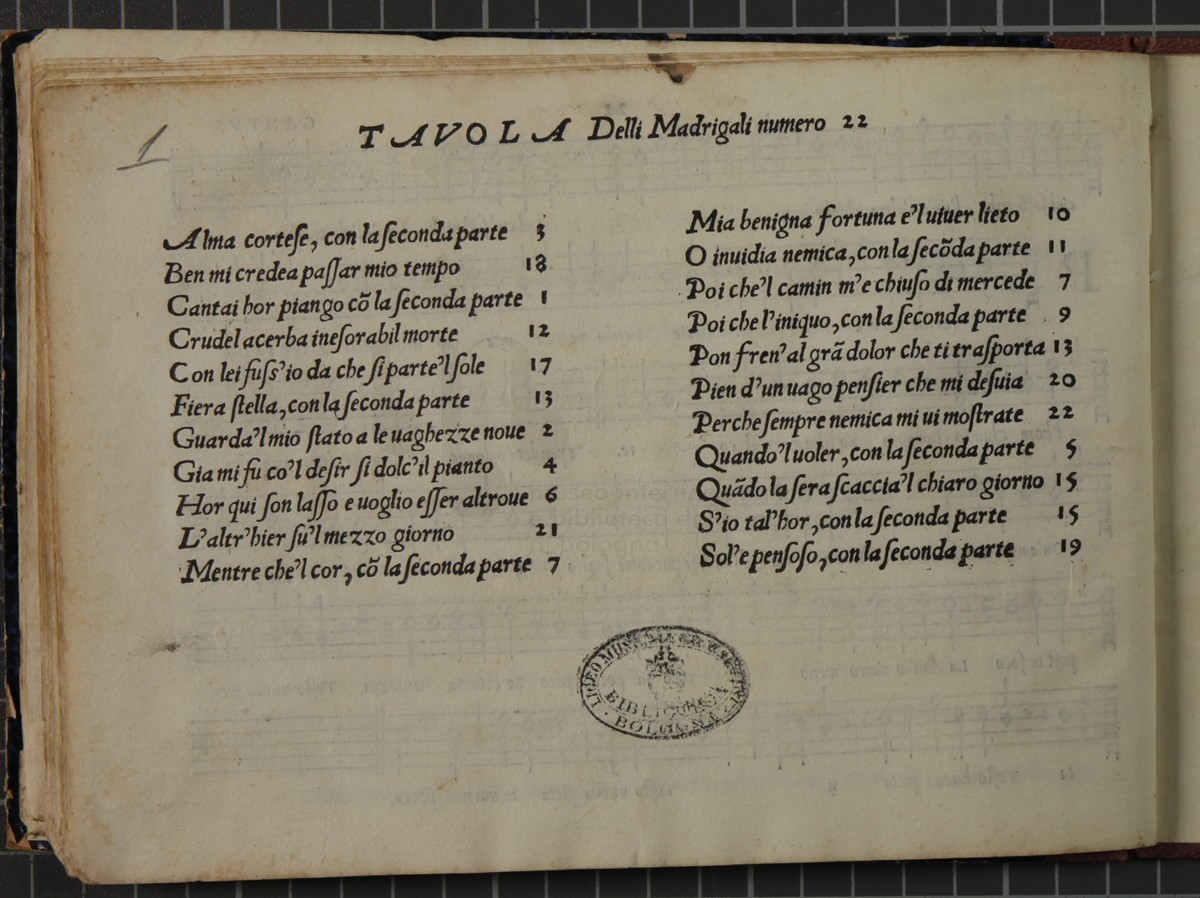 1
TAVOLA Delli Madrigali numero 22
Alma corteſe, con la ſeconda parte 3
Ben mi credea paſſar mio tempo 18
Cantai hor piango cõ la ſeconda parte 1
Crudel acerba ineſorabil morte 12
Con lei fuſs'io da che ſi parte'l ſole 17
Fiera ſtella, con la ſeconda parte 13
Guarda'l mio ſtato a le uaghezze noue 2
Gia mi fu co'l deſir ſi dolc'il pianto 4
Hor qui ſon laſſo e uoglio eſſer altroue 6
L'altr'hier ſu'l mezzo giorno 21
Mentre che'l cor, cõ la ſeconda parte 7
Mia benigna fortuna e'l uiuer lieto 10
O inuidia nemica, con la ſecõda parte 11
Poi che'l camin m'e chiuſo di mercede 7
Poi che l'iniquo, con la ſeconda parte 9
Pon fren'al grã dolor che ti traſporta 13
Pien d'un uago penſier che mi deſuia 20
Perche ſempre nemica mi ui moſtrate 22
Quando'l uoler, con la ſeconda parte 5
Quãdo la ſera ſcaccia'l chiaro giorno 15
S'io tal'hor, con la ſeconda parte 15
Sol'e penſoſo, con la ſeconda parte 19
LICEO MUSICALE
BIBLIOTECA
BOLOGNA